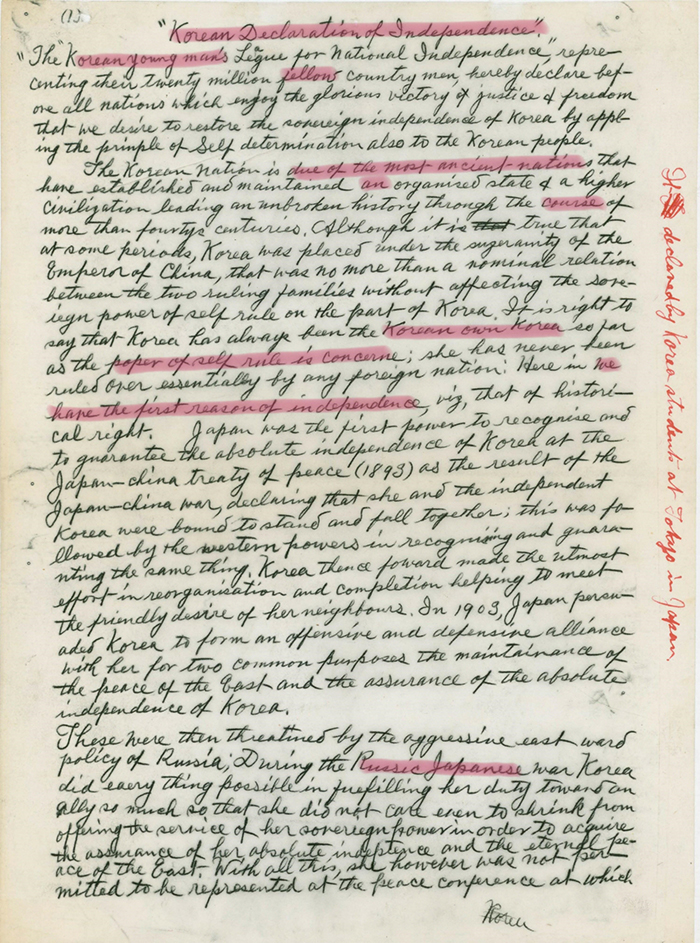 (1).
"Korean Declaration of Independence".
"The "Korean young man's League for National Independence", repre-
centing their twenty million fellow country men, hereby declare bef-
ore all nations which enjoy the glorious victory of justice & freedom
that we desire to restore the sovereign independence of Korea by appl-
ing the prinple of Self determination also to the Korean people.
The Korean Nation is due of the most ancient nations that
have established and maintained an organised state & a higher
civilization leading an unbroken history through the course of
more than fourtys centuries. Although it is that true that
at some periods, Korea was placed under the suzerainty of the
Emperor of China, that was no more than a nominal relation
between the two ruling families without affecting the sove-
reign power of self rule on the part of Korea. It is right to
say that Korea has always been the Korean own Korea so far
as the poper of self rule is concerne; she has never been
ruled over essentially by any foreign nation. Here in we
have the first reason of independence, viz, that of histori-
cal right. Japan was the first power to recognise and
to guarantee the absolute independence of Korea at the
Japan-china treaty of peace (1893) as the result of the
Japan-china war, declaring that she and the independent
Korea were bound to stand and fall together; this was fo-
llowed by the western powers in recognising and guara-
nting the same thing. Korea thence foward made the utmost
effort in reorganisation and completion helping to meet
the friendly desire of her neighbours. In 1903, Japan persu-
aded Korea to form an offensive and defensive alliance
with her for two common purposes the maintainance of
the peace of the East and the assurance of the absolute
independence of Korea.
These were then threatined by the aggressive east ward
policy of Russia; During the Russic Japanese war Korea
did eaery thing possible in fuefilling her duty toward an
ally so much so that she did not care even to shrink from
offuring the service of her sovereign power in order to acquire
the assurance of her absolute indeptence and the eternal pe-
ace of the East. With all this, she however was not per-
mitted to be represented at the peace conference at which
Korea
It declared by Korea students at Tokyo in Japan.